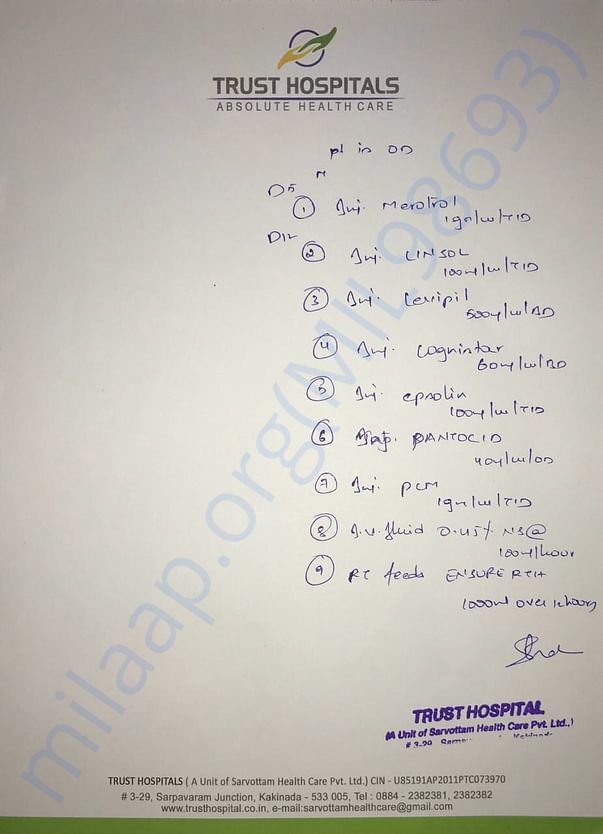 TRUST HOSPITALS
ABSOLUTE HEALTH CARE
pt in OD
D5
① Inj. Merotrol
1gm/IV/TID
D12
② Inj. LINSOL
100ml/IV/TID
③ Inj. Levipil
500mg/IV/BD
④ Inj. Cognistar
60mg/IV/BD
⑤ Inj. epsolin
100mg/IV/TID
⑥ Inj. PANTOCID
40mg/IV/OD
⑦ Inj. PCM
1gm/IV/TID
⑧ I.V. fluid 0.45% NS @
100ml/hour
⑨ RT feeds ENSURE RTH
1000ml over
TRUST HOSPITAL
(A Unit of Sarvottam Health Care Pvt. Ltd.,)
# 3-29,
milaap.org(MIL98693)
TRUST HOSPITALS ( A Unit of Sarvottam Health Care Pvt. Ltd.) CIN - U85191AP2011PTC073970
# 3-29, Sarpavaram Junction, Kakinada - 533 005, Tel : 0884 - 2382381, 2382382
www.trusthospital.co.in, e-mail:sarvottamhealthcare@gmail.com